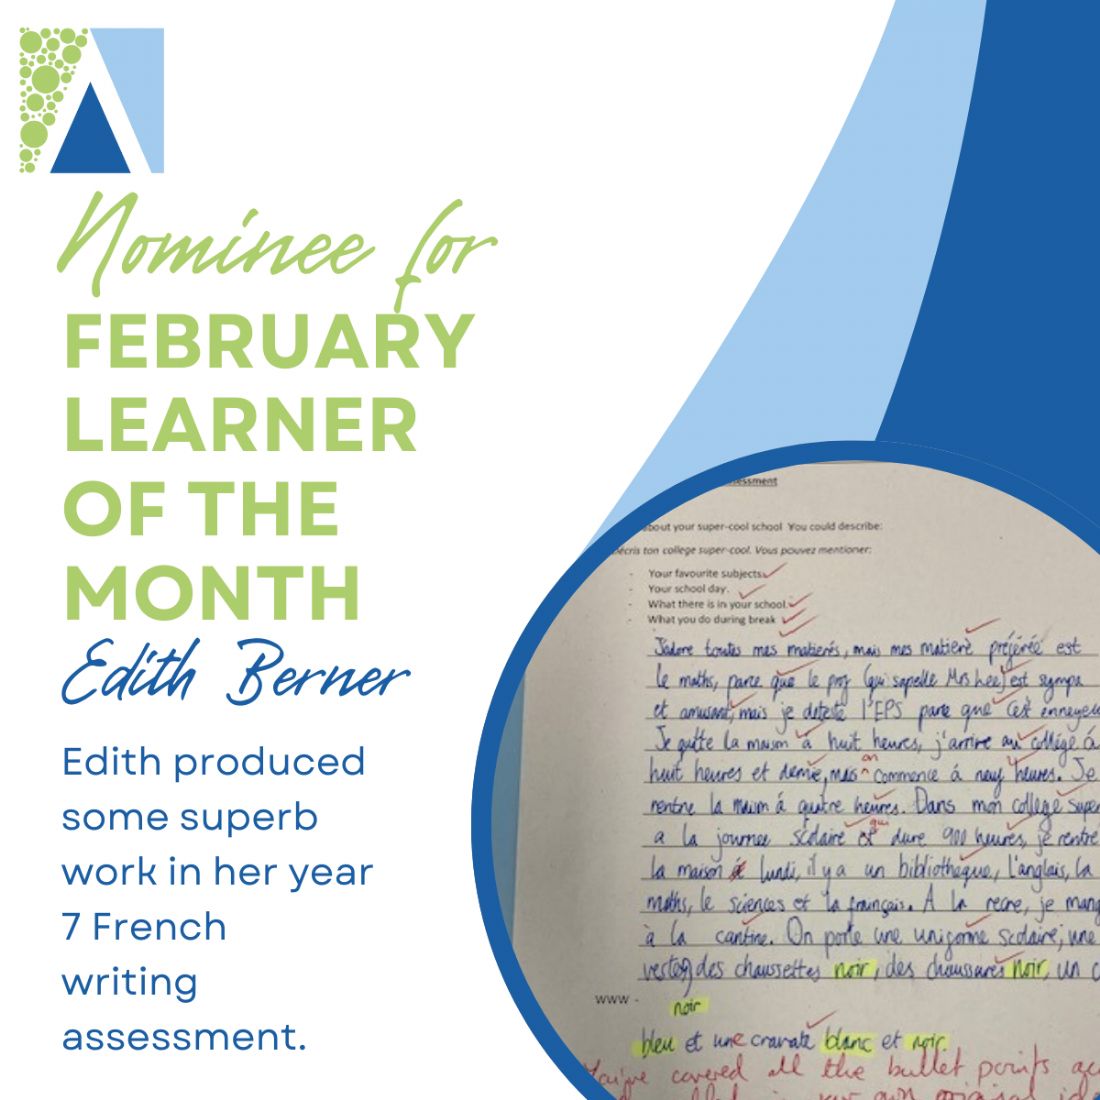 Nominee for
FEBRUARY
LEARNER
OF THE
MONTH
Edith Berner
Edith produced
some superb
work in her year
7 French
writing
assessment.
about your super-cool school You could describe:
ton college super-cool. Vous pouvez mentioner:
- Your favourite subjects.
- Your school day.
- What there is in your school.
- What you do during break
J'adore toutes mes matierés, mais mes matierè préjérée est
le maths, parce que le proj (qui sapelle Mrs Lee) est sympa
et amusant, mais je deteste l'EPS parce que c'est
Je quitte la maison à huit heures, j'arrive au collégé á
huit heures et demie, mais on commence á neuf heures. Je
rentre la maison á quatre heures. Dans mon collège super
a la journee scolaire et qui dure 900 heures, je rentre
la maison lundi, il y a un bibliothèque, l'anglais, la
maths, le sciences et la français. A la recre, je mang
à la cantine. On porte une uniforme scolaire, une
des chaussettes noir, des chaussures noir, un
www -
noir
bleu et une cravate blanc et noir.
You've covered all the bullet points
own original